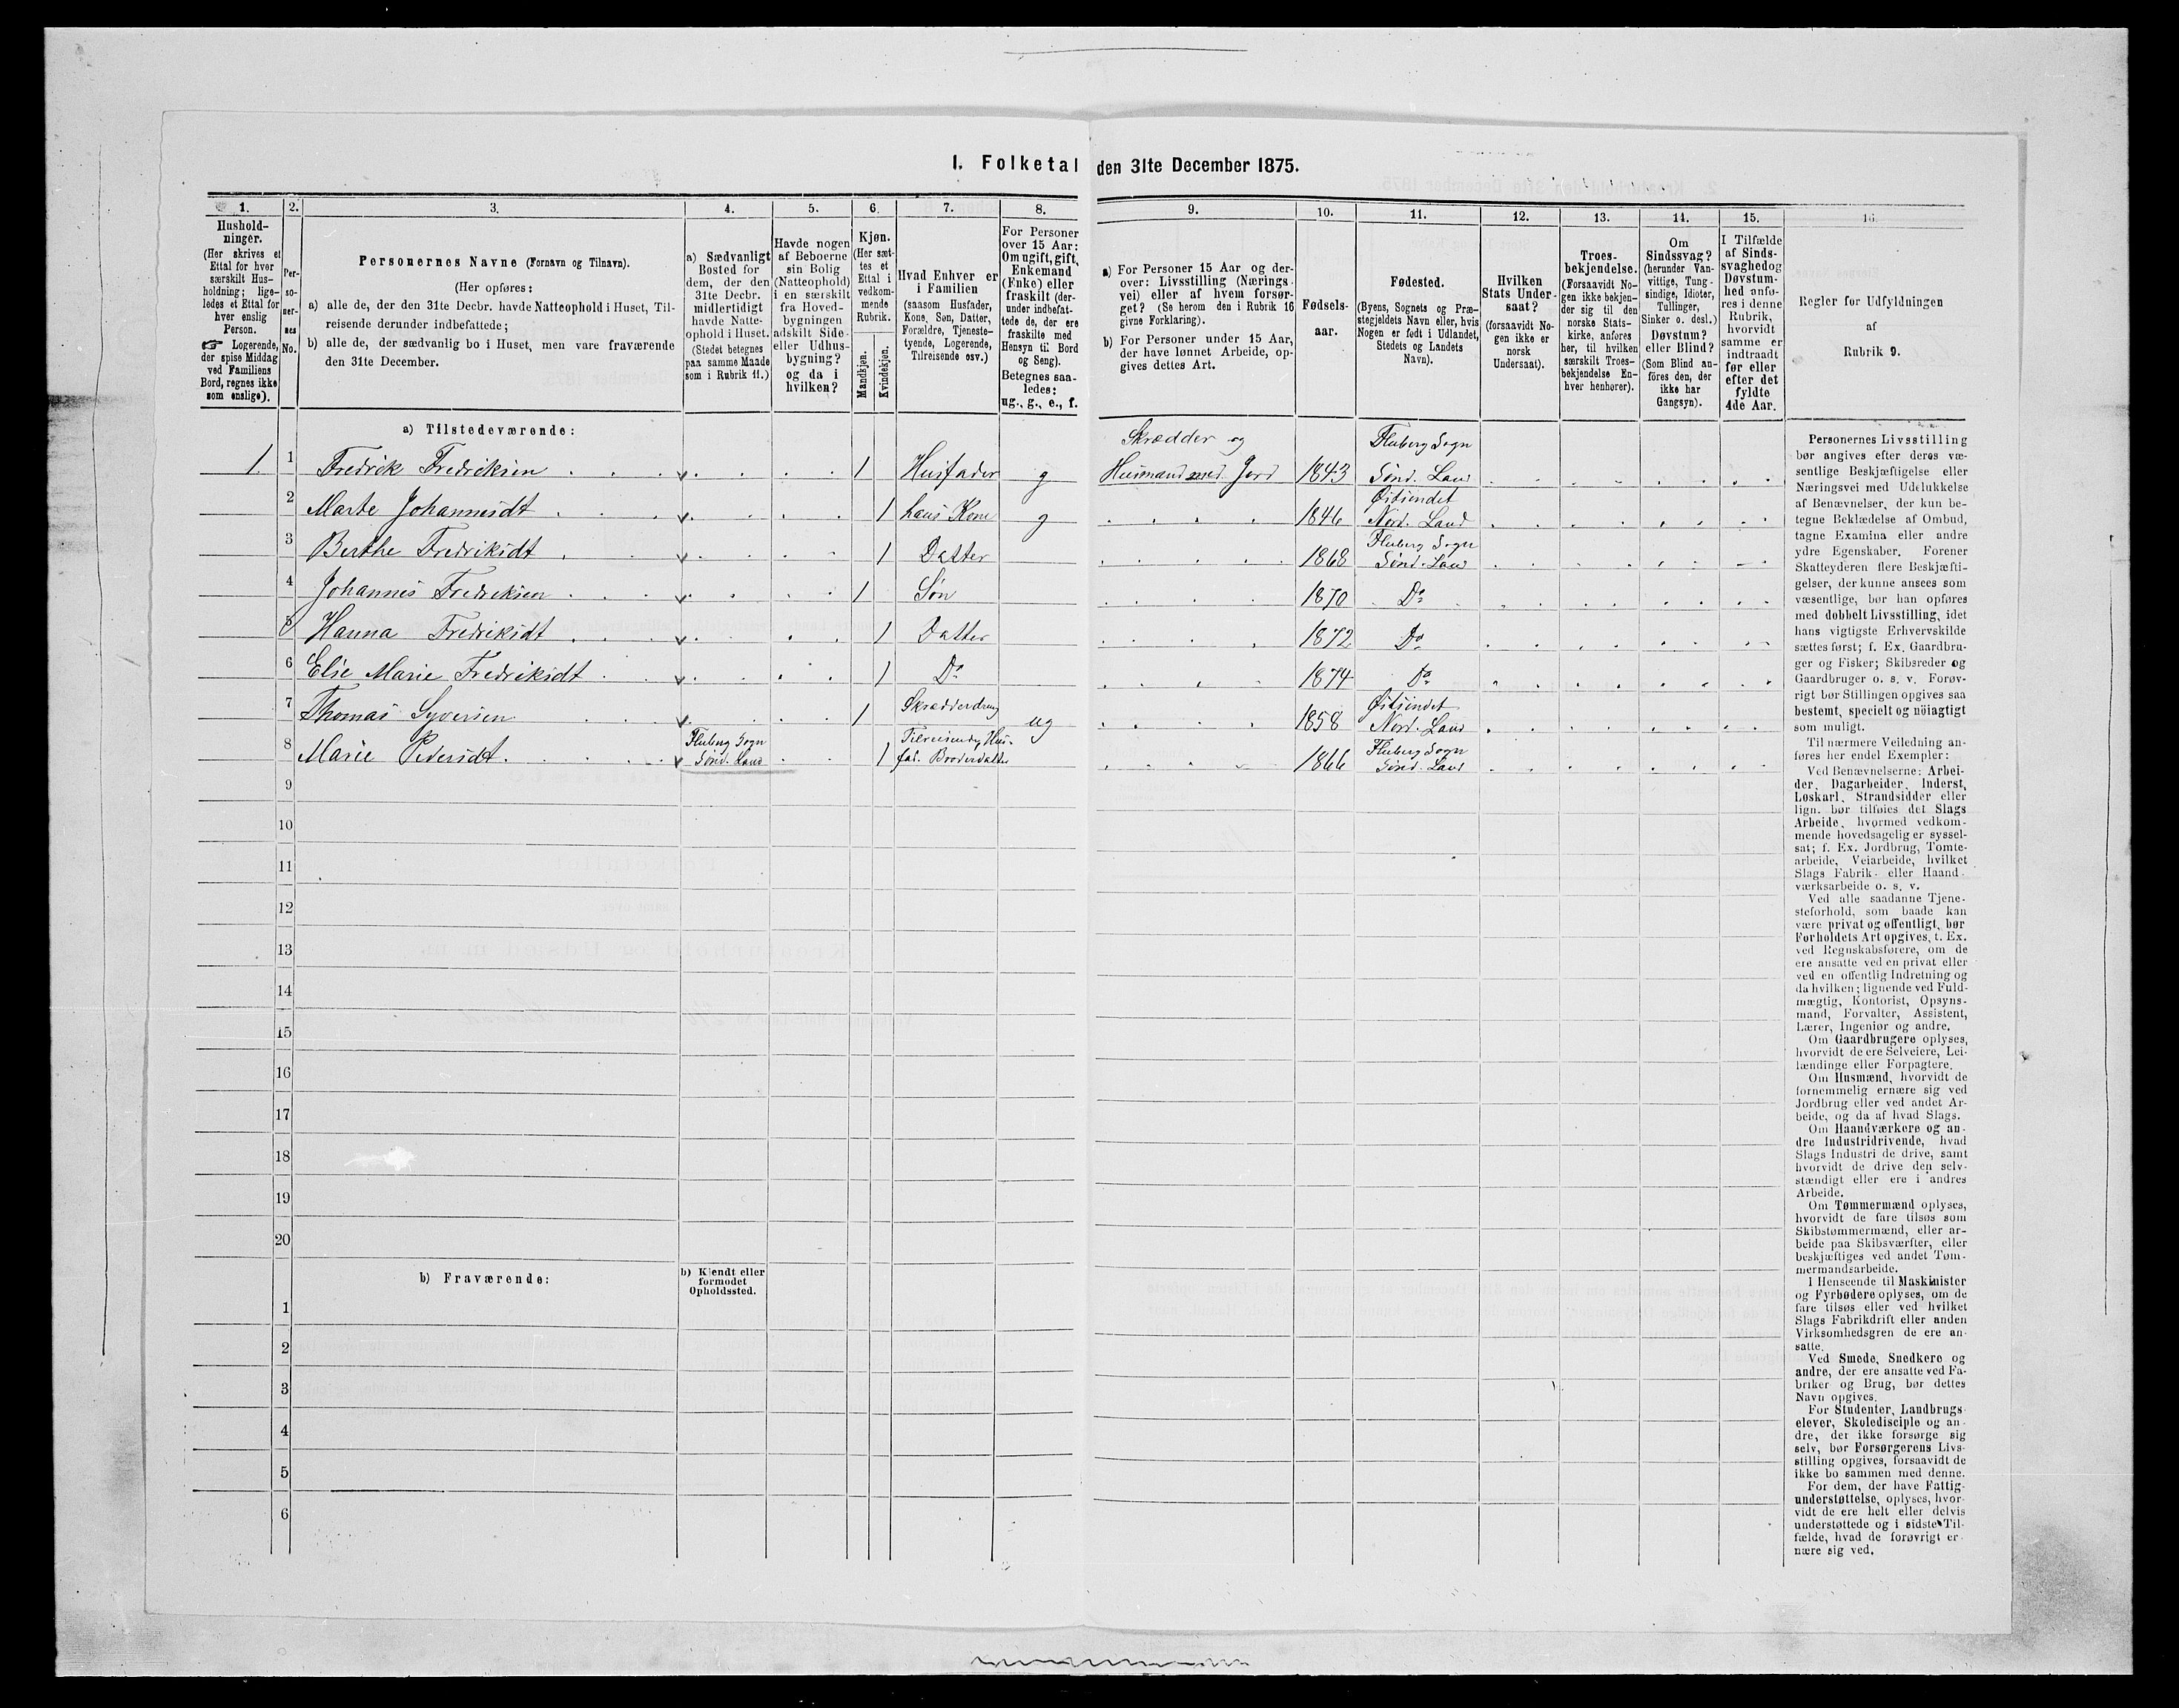 I. Folketal den 31te December 1875.
1.
Hushold-
ninger.
(Her skrives et
Ettal for hver
særskilt Hus-
holdning; lige-
ledes et Ettal for
hver enslig
Person.
☞ Logerende,
der spise Middag
ved Familiens
Bord, regnes ikke
som enslige).
2.
Per-
so-
ner-
nes
No.
3.
Personernes Navne (Fornavn og Tilnavn).
(Her opføres:
a) alle de, der den 31te Decbr. havde Natteophold i Huset, Til-
reisende derunder indbefattede;
b) alle de, der sædvanlig bo i Huset, men vare fraværende
den 31te December.
4.
a) Sædvanligt
Bosted for
dem, der den
31te Decbr.
midlertidigt
havde Natte-
ophold i Huset.
(Stedet betegnes
paa samme Maade
som i Rubrik 11.)
5.
Havde nogen
af Beboerne
sin Bolig
(Natteophold)
i en særskilt
fra Hoved-
bygningen
adskilt Side-
eller Udhus-
bygning?
og da i
hvilken?
6.
Kjøn.
(Her sæt-
tes et
Ettal i
vedkom-
mende
Rubrik.
Mandkjøn.
Kvindekjøn.
7.
Hvad Enhver er
i Familien
(saasom Husfader,
Kone, Søn, Datter,
Forældre, Tjeneste-
tyende, Logerende,
Tilreisende osv.)
8.
For Personer
over 15 Aar:
Om ugift, gift,
Enkemand
(Enke) eller
fraskilt (der-
under indbefat-
tede de, der ere
fraskilte med
Hensyn til Bord
og Seng).
Betegnes saa-
ledes:
ug., g., e., f.
9.
a) For Personer 15 Aar og der-
over: Livsstilling (Nærings-
vei) eller af hvem forsør-
get? (Se herom den i Rubrik 16
givne Forklaring).
b) For Personer under 15 Aar,
der have lønnet Arbeide, op-
gives dettes Art.
10.
Fødsels-
aar.
11.
Fødested.
(Byens, Sognets og Præ-
stegjeldets Navn eller, hvis
Nogen er født i Udlandet,
Stedets og Landets
Navn).
12.
Hvilken
Stats Under-
saat?
(forsaavidt No-
gen ikke er
norsk
Undersaat).
13.
Troes-
bekjendelse.
(Forsaavidt No-
gen ikke bekjen-
der sig til den
norske Stats-
kirke, anføres
her, til hvilken
særskilt Troes-
bekjendelse En-
hver henhører).
14.
Om
Sindssvag?
(herunder Van-
vittige, Tung-
sindige, Idioter,
Tullinger,
Sinker o. desl.)
Døvstum?
eller Blind?
(Som Blind an-
föres den, der
ikke har
Gangsyn).
15.
I Tilfælde
af Sinds-
svaghed og
Døvstum-
hed anfø-
res i denne
Rubrik,
hvorvidt
samme er
indtraadt
før eller
efter det
fyldte
4de Aar.
16.
Regler for Udfyldningen
af
Rubrik 9.
a) Tilstedeværende:
1 1 Fredrik Fredriksen v 1 Husfader g Skrædder og Husmand med Jord 1843 Fluberg Sogn Sønd. Land
2 Marte Johannesdt v 1 hans Kone g 1846 Østsindet Nord. Land
3 Berthe Fredriksdt v 1 Datter 1868 Fluberg Sogn Sønd. Land
4 Johannes Fredriksen v 1 Søn 1870 Do
5 Hanna Fredriksdt v 1 Datter 1872 Do
6 Elise Marie Fredriksdt v 1 Do 1874 Do
7 Thomas Syversen v 1 Skrædderdreng ug 1858 Østsindet Nord. Land
8 Marie Pedersdt v Fluberg Sogn Sønd. Land 1 Tilreisende, Hus-fad. Broderdatter 1866 Fluberg Sogn Sønd. Land
9
10
11
12
13
14
15
16
17
18
19
20
b) Fraværende:
b) Kjendt eller
formodet
Opholdssted.
1
2
3
4
5
6
Personernes Livsstilling
bør angives efter deres væ-
sentlige Beskjæftigelse eller
Næringsvei med Udelukkelse
af Benævnelser, der kun be-
tegne Beklædelse af Ombud,
tagne Examina eller andre
ydre Egenskaber. Forener
Skatteyderen flere Beskjæfti-
gelser, der kunne ansees som
væsentlige, bør han opføres
med dobbelt Livsstilling, idet
hans vigtigste Erhvervskilde
sættes først; f. Ex. Gaardbru-
ger og Fisker; Skibsreder og
Gaardbruger o. s. v. Forøv-
rigt bør Stillingen opgives saa
bestemt, specielt og nöiagtigt
som muligt.
Til nærmere Veiledning an-
føres her endel Exempler:
Ved Benævnelserne: Arbei-
der, Dagarbeider, Inderst,
Løskarl, Strandsidder eller
lign. bør tilføies det Slags
Arbeide, hvormed vedkom-
mende hovedsagelig er syssel-
sat; f. Ex. Jordbrug, Tomte-
arbeide, Veiarbeide, hvilket
Slags Fabrik- eller Haand-
værksarbeide o. s. v.
Ved alle saadanne Tjene-
steforhold, som baade kan
være privat og offentligt, bør
Forholdets Art opgives, t. Ex.
ved Regnskabsførere, om de
ere ansatte ved en privat eller
ved en offentlig Indretning og
da hvilken; lignende ved Fuld-
mægtig, Kontorist, Opsyns-
mand, Forvalter, Assistent,
Lærer, Ingeniør og andre.
Om Gaardbrugere oplyses,
hvorvidt de ere Selveiere, Lei-
lændinge eller Forpagtere.
Om Husmænd, hvorvidt de
fornemmelig ernære sig ved
Jordbrug eller ved andet Ar-
beide, og da af hvad Slags.
Om Haandværkere og an-
dre Industridrivende, hvad
Slags Industri de drive, samt
hvorvidt de drive den selv-
stændigt eller ere i andres
Arbeide.
Om Tømmermænd oplyses,
hvorvidt de fare tilsøs som
Skibstømmermænd, eller ar-
beide paa Skibsværfter, eller
beskjæftiges ved andet Tøm-
mermandsarbeide.
I Henseende til Maskinister
og Fyrbødere oplyses, om de
fare tilsøs eller ved hvilket
Slags Fabrikdrift eller anden
Virksomhedsgren de ere an-
satte.
Ved Smede, Snedkere og
andre, der ere ansatte ved Fa-
briker og Brug, bør dettes
Navn opgives.
For Studenter, Landbrugs-
elever, Skoledisciple og an-
dre, der ikke forsørge sig
selv, bør Forsørgerens Livs-
stilling opgives, forsaavidt de
ikke bo sammen med denne.
For dem, der have Fattig-
understøttelse, oplyses, hvor-
vidt de ere helt eller delvis
understøttede og i sidste Til-
fælde, hvad de forøvrigt er-
nære sig ved.